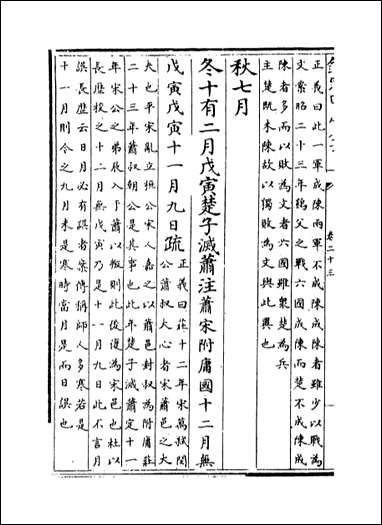 正義曰此一軍成陳兩軍不成陳成陳者雖少以戰為
文案昭二十三年雞父之戰六國成陳而楚不成陳成
陳者多而以敗為文者六國雖眾楚為兵
主楚既未陳故以獨敗為文與此異也
秋七月
冬十有二月戊寅楚子滅蕭注蕭宋附庸國十二月無
戊寅戊寅十一月九日疏正義曰莊十二年宋萬弒閔
公蕭叔大心者宋蕭邑之大
夫也平宋亂立桓公宋人嘉之以蕭邑封叔為附庸莊
二十三年蕭叔朝公是其事也此年楚子滅蕭定十一
年宋公之弟辰入于蕭以叛則此後復為宋邑也杜以
長歷校之十二月無戊寅乃是十一月九日此不言月
誤長歷云日月必有誤者案傳稱師人多寒若是
十一月則今之九月未是寒時當月是而日誤也
卷二十三